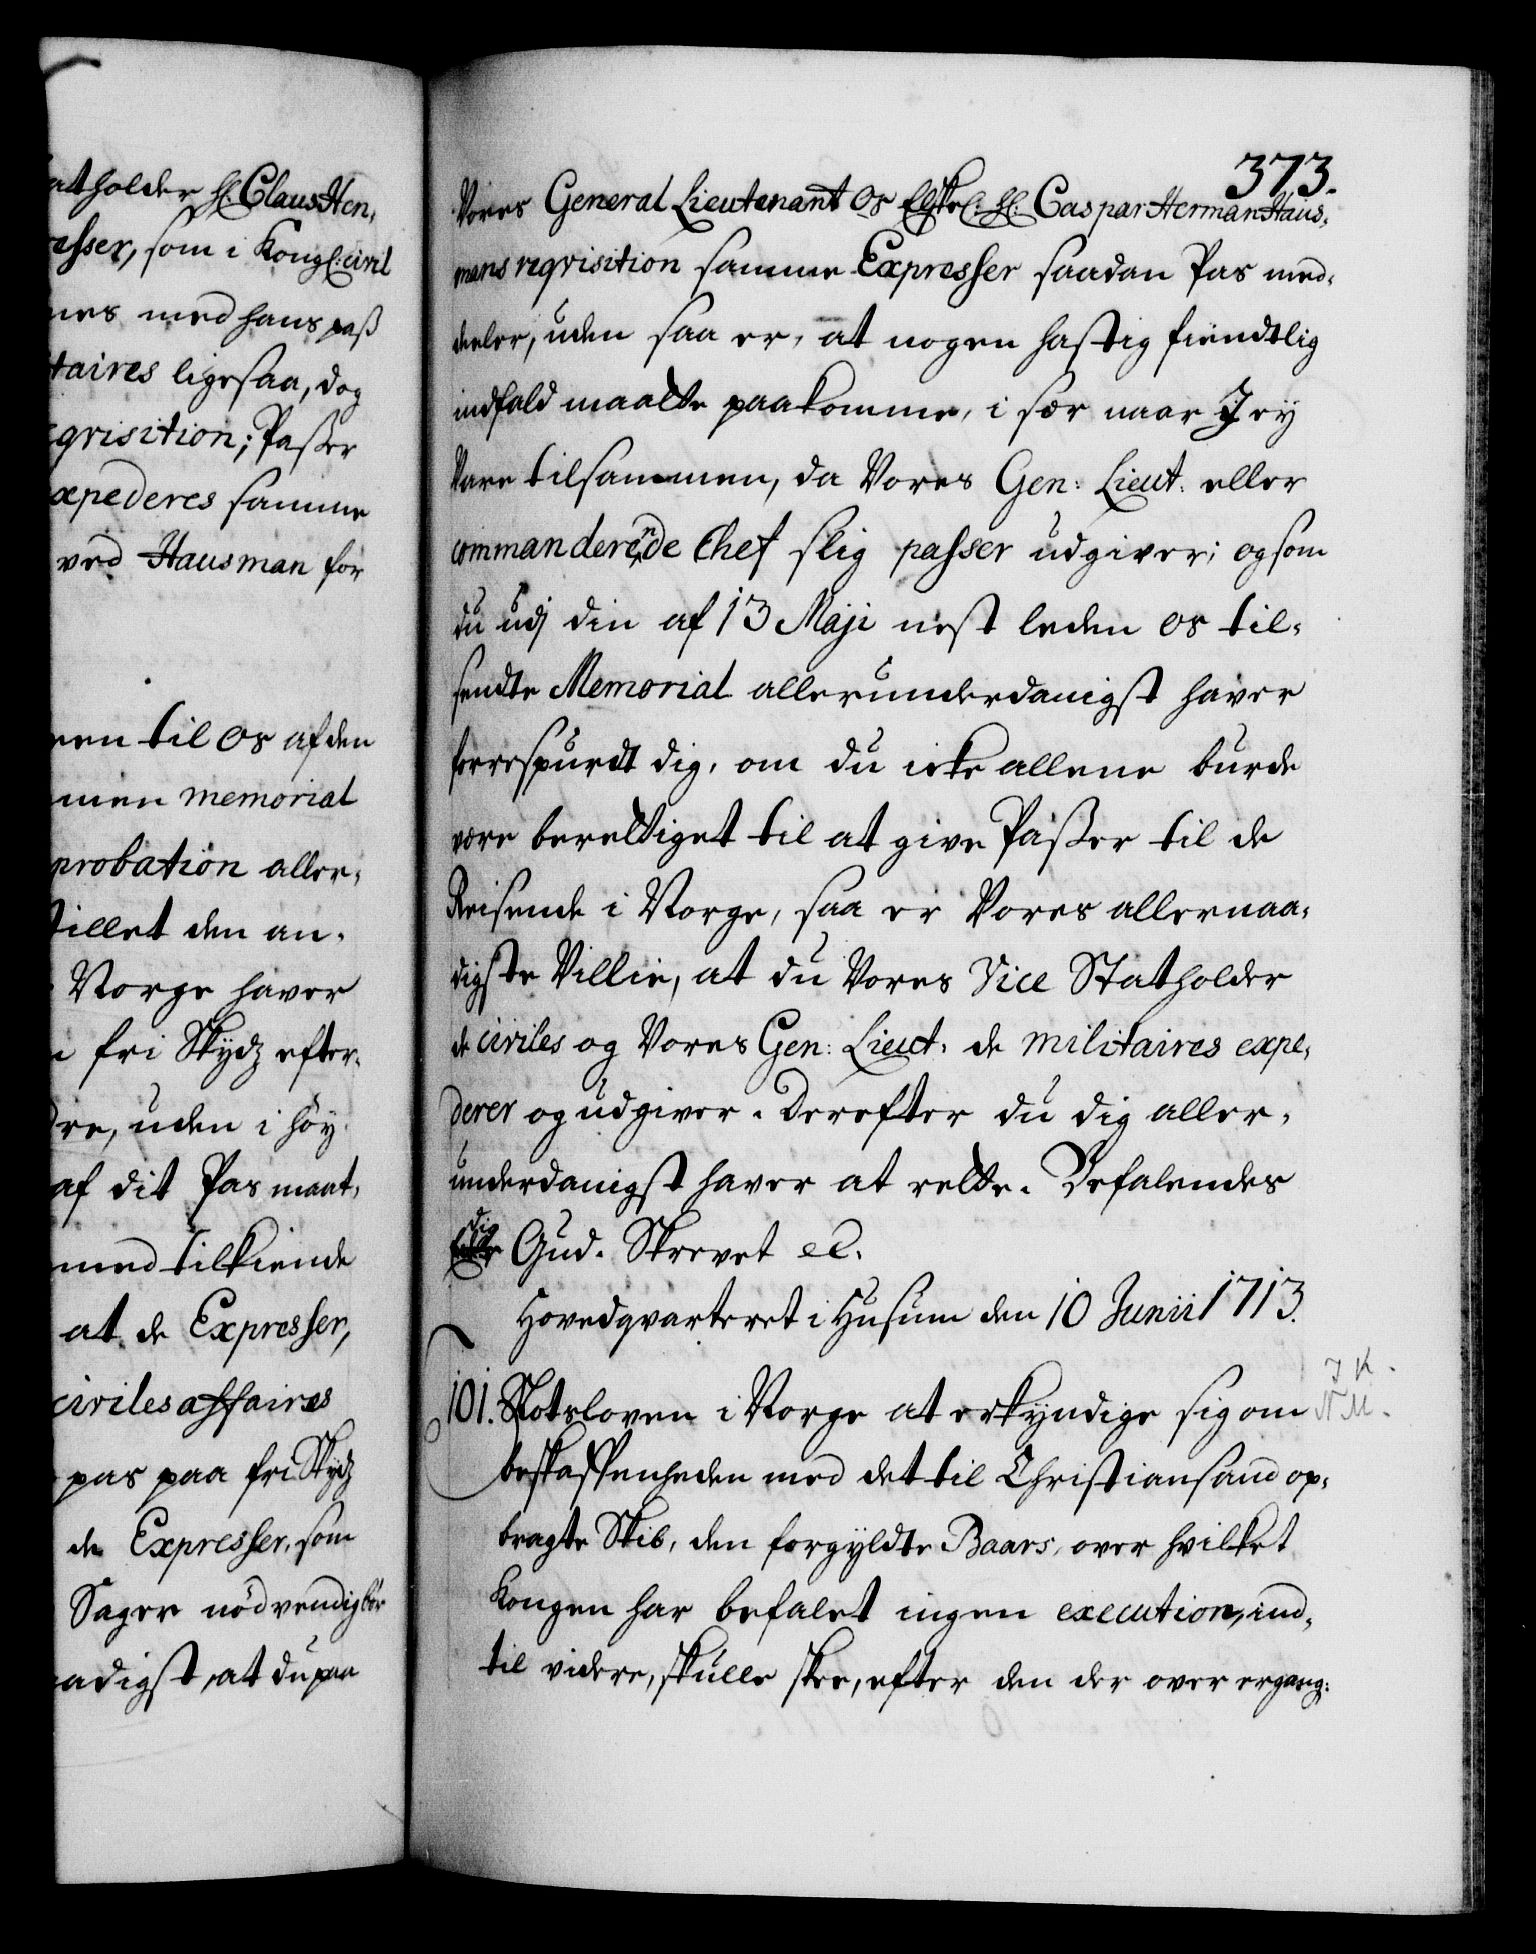 atholder H: Claus Hen,
esser, som i Kongl: civil
nes med hans pass
taires ligesaa, dog
qvisition; Passer
xpederes samme
ved Hausman for
en til os af den
men memorial
probation aller,
stillet den an,
Norge haver
fri Skydz efter,
re, uden i høy
af dit Pas maat,
med tilkiende
at de Expresser,
civiles affaires
pas paa fri Skydz
de Expresser, som
Sager nödvendig bør
adigst, at du paa
373.
Vores General Lieutenant os Elskel: H: Caspar Herman Haus,
mans reqvisition samme Expresser saadan Pas med,
deeler, uden saa er, at nogen hastig fiendtlig
indfald maatte paakomme, i sær naar I ey
Vare tilsammen, da Vores Gen: Lieut: eller
commanderende Chef slig passer udgiver; og som
du udj din af 13 Maji nest leden os til,
sendte Memorial allerunderdanigst haver
forrespurdt dig, om du icke allene burde
være berettiget til at give Passer til de
Reisende i Norge, saa er Vores allernaa,
digste Villie, at du Vores Vice Statholder
de civiles og Vores Gen: Lieut: de militaires expe,
derer og udgiver. Derefter du dig aller,
underdanigst haver at rette. Befalendes
dig
Gud. Skrevet etc.
Hovedqvarteret i Husum den 10 Junii 1713.
101. Slotsloven i Norge at erkyndige sig om
I K.
N M.
beskaffenheden med det til Christiansand op,
bragte Skib, den forgyldte Baars, over hvilket
Kongen har befalet ingen execution, ind,
til videre, skulle skee, efter den der over ergang: